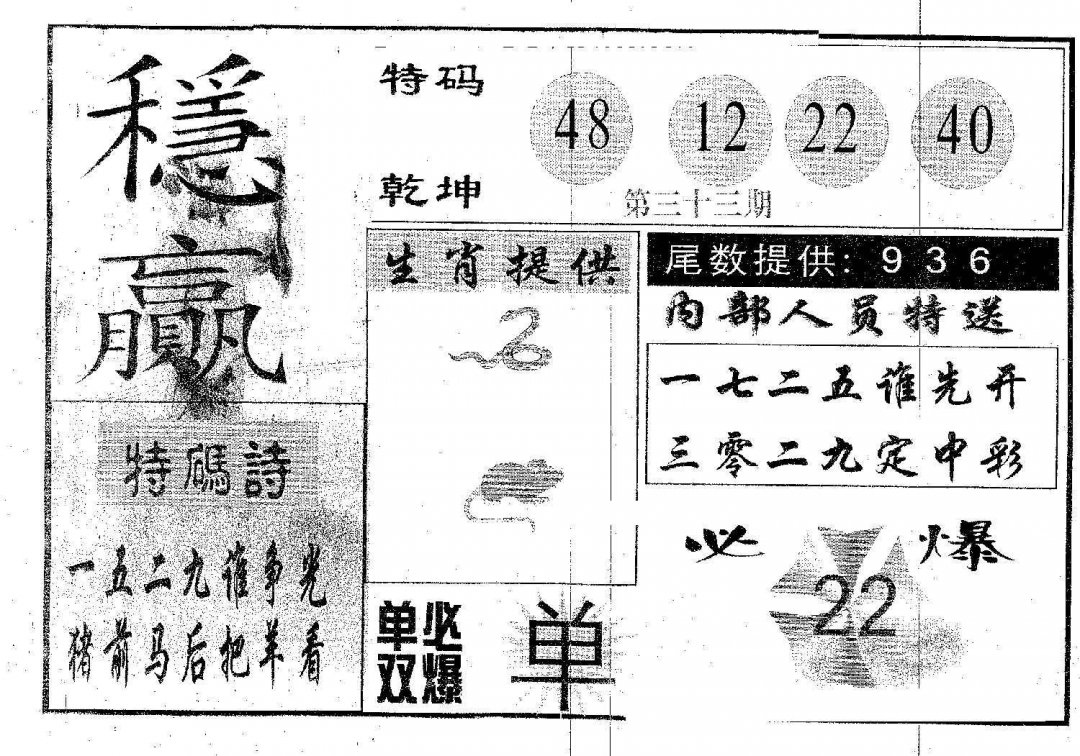 穩
贏
特码
48 12 22 40
乾坤
第三十三期
生肖提供
尾数提供: 9 3 6
内部人员特送
一七二五谁先开
三零二九定中彩
特碼詩
一五二九谁争光
猪前马后把羊看
单必
双爆
单
必 22 爆